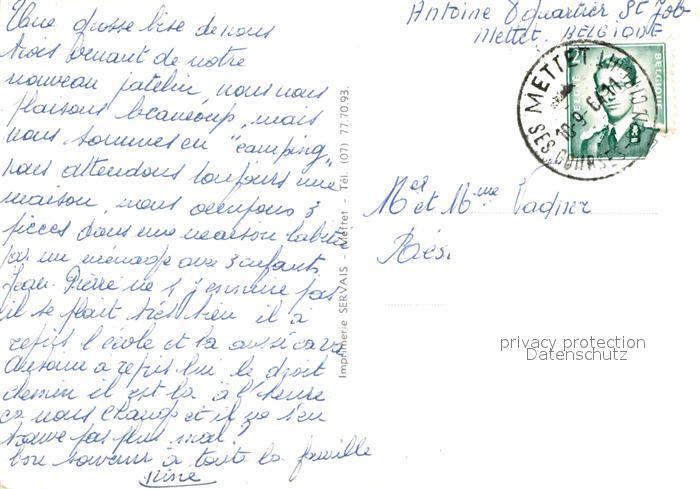 Une grosse bise de nous
trois venant de notre
nouveau patelin, nous nous
plaisons beaucoup, mais
nous sommes en "camping"
nous attendons toujours une
maison, nous occupons 3
pieces dans une maison habité
par un ménage avec 3 enfants
Jean-Pierre ne s'y ennuie pas
il se plait très bien il a
repris l'école et la aussi ça va
a repris lui le droit
chemin il est la à l'heure
ça nous change et il ne s'en
trouve pas plus mal!
bon souvenir à toute la famille
Antoine quartier St Job
Mettet. BELGIQUE
METTET
BELGIQUE
Mr et Mme
Imprimerie SERVAIS - Mettet - Tél. (07) 77.70.93.
privacy protection
Datenschutz